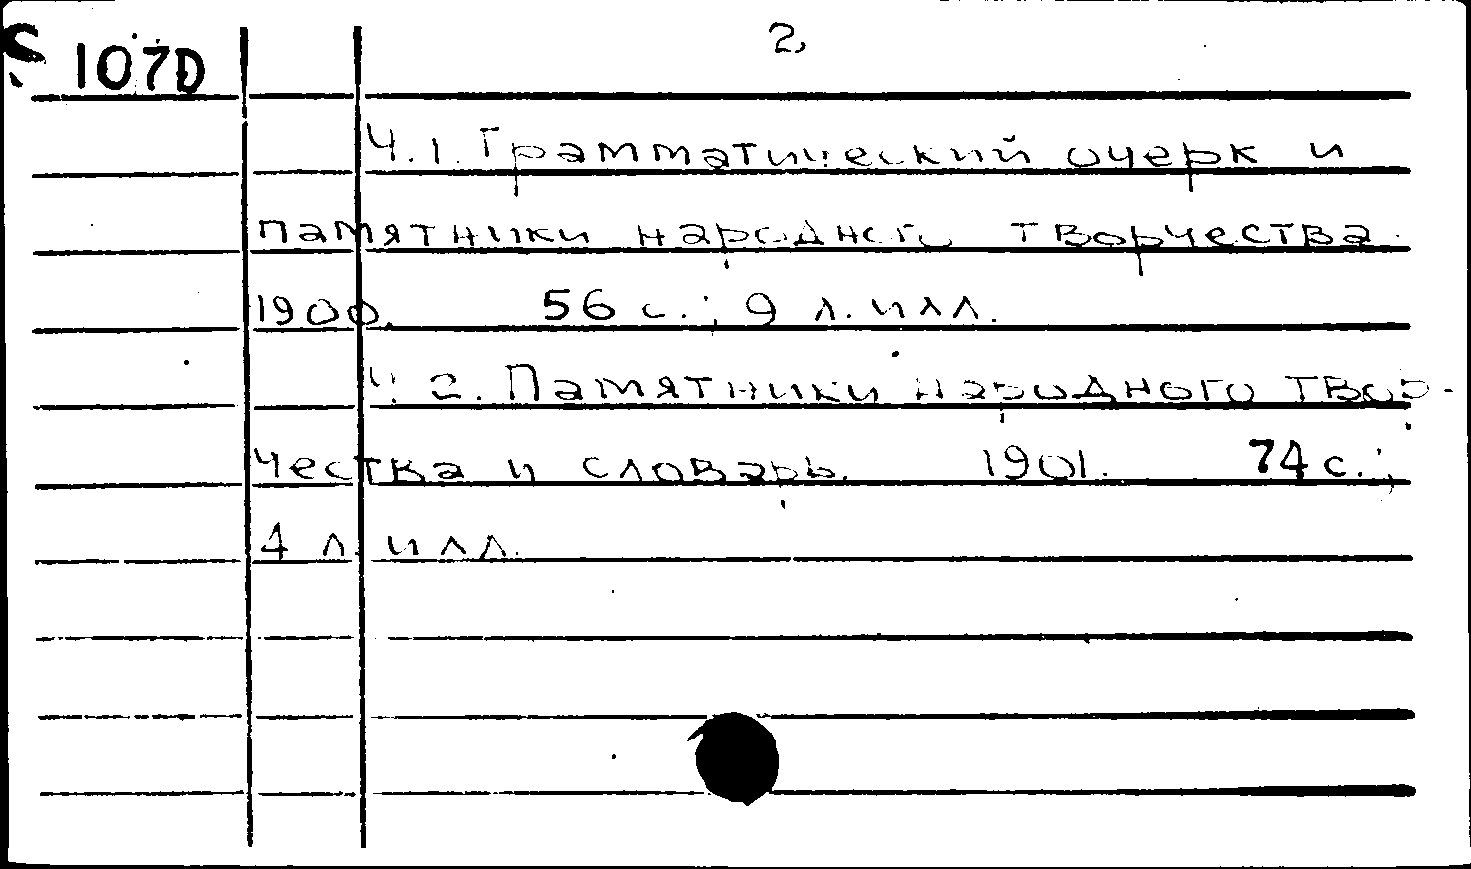 S 107D
2
Ч.1. Грамматический очерк и
памятники народного творчества.
1900. 56 с.; 9 л. илл.
Ч. 2. Памятники народного твор-
чества и словарь. 1901. 74 с.;
4 л. илл.